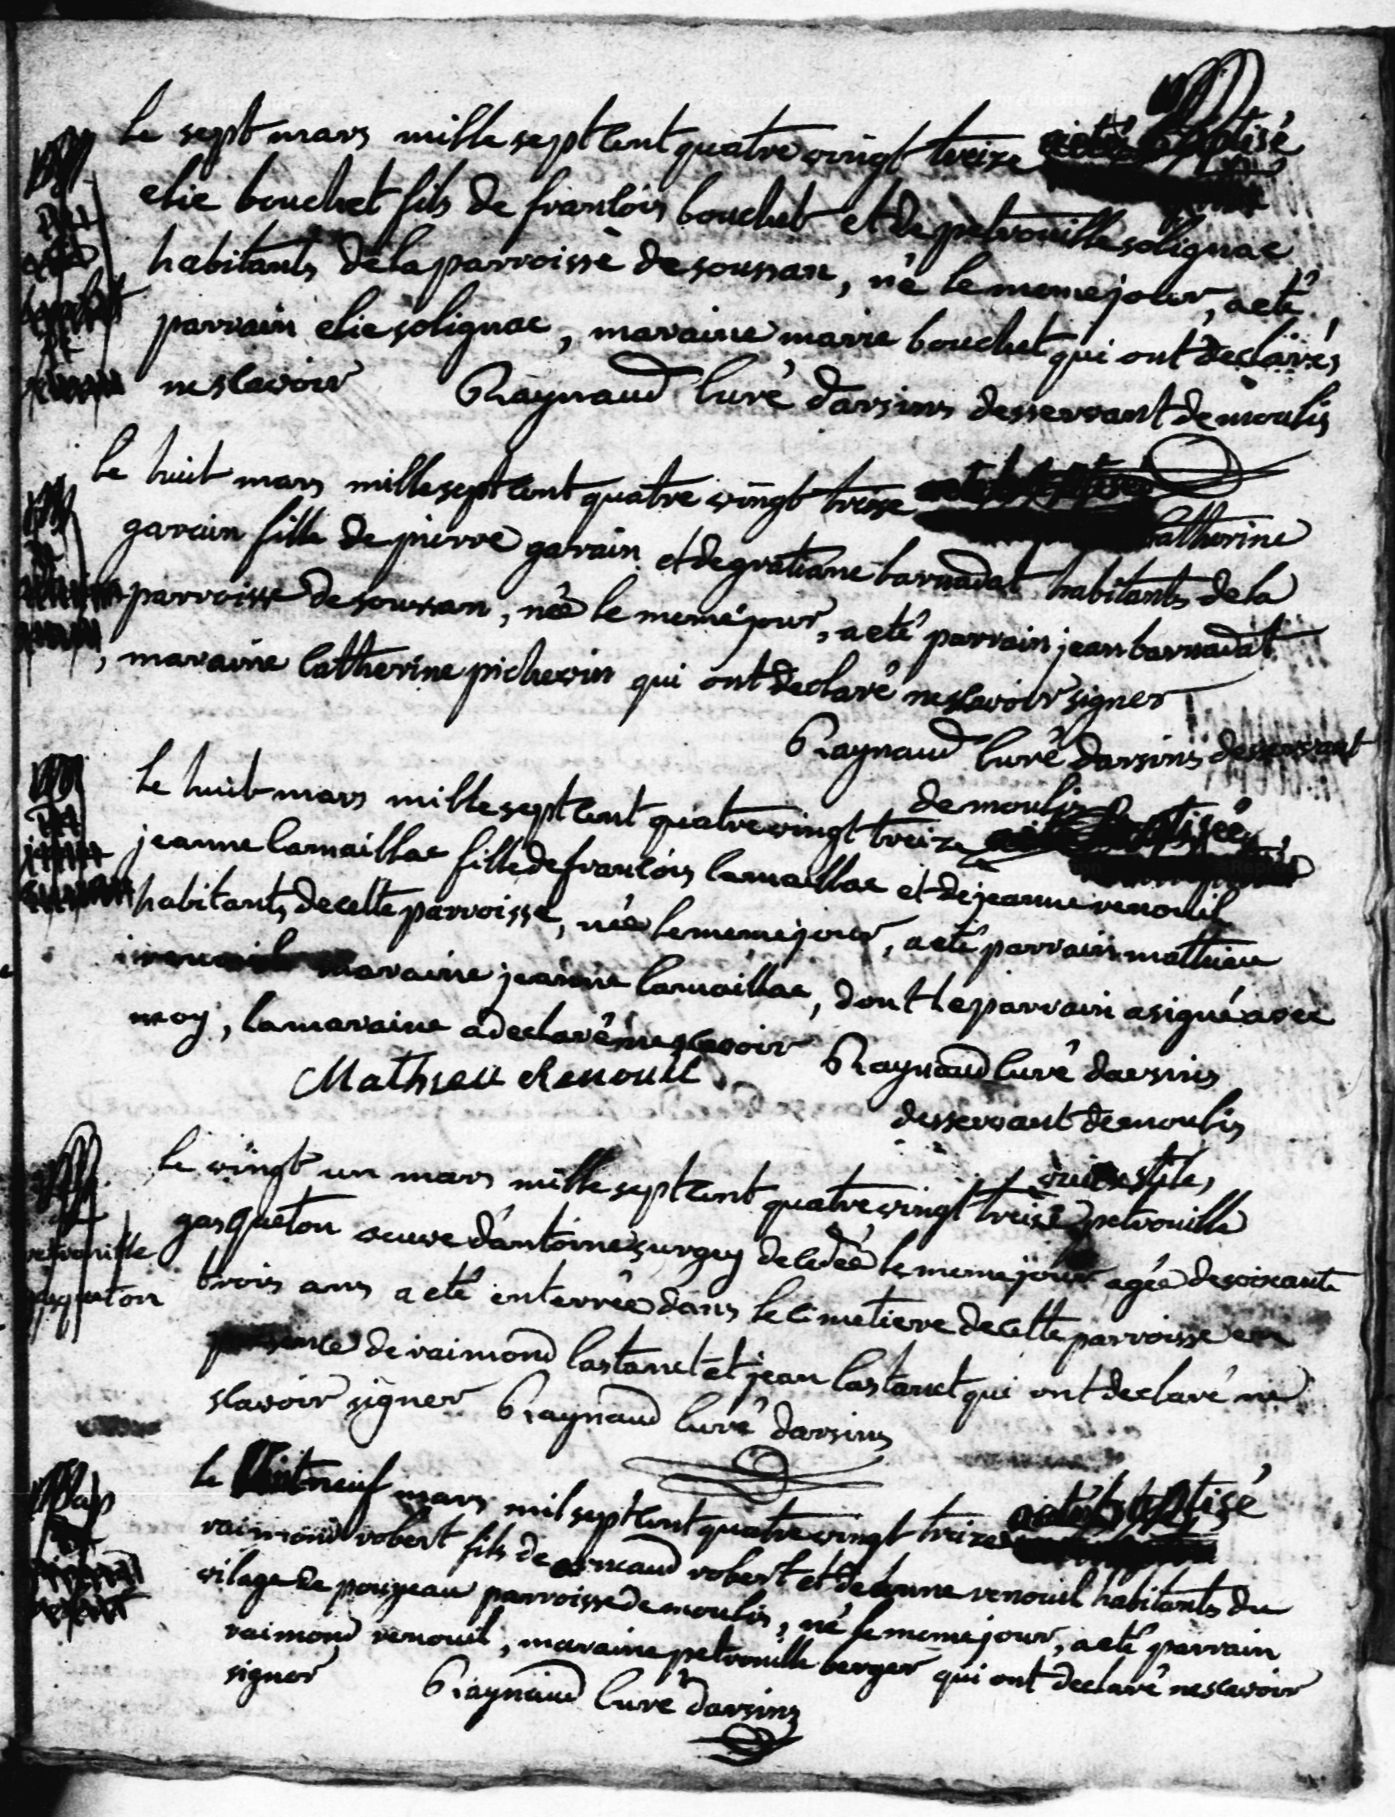 le sept mars mille sept cent quatre vingt treize a été baptisé
elie bouchet fils de francois bouchet et de petrouille solignac
habitants de la parroisse de soussan, né le meme jour, a eté
parrain elie solignac, maraine marie bouchet qui ont declarés
ne scavoir Raynaud curé d'arsins desservant de moulis
le huit mars mille sept cent quatre vingt treze Catherine
garain fille de pierre garain et de gratiane barnadat habitants de la
parroisse de soussan, née le meme jour, a eté parrain jean barnadat
, maraine Catherine pichevin qui ont declaré ne scavoir signer
Raynaud curé d'arsins desservant
de moulis
le huit mars mille sept cent quatre vingt treize a été baptisée
jeanne lamaillac fille de francois lamaillac et de jeanne renouil
habitants de cette parroisse, née le meme jour, a eté parrain mathieu
maraine jeanne lamaillac, dont le parrain a signé avec
moy, la maraine a declaré ne scavoir Raynaud curé d'arsins
Mathieu Renouil
desservant de moulis
vieux stile,
le vingt un mars mille sept cent quatre vingt treize petrouille
gasqueton veuve d'antoine surguy decedée le meme jour agée de soixante
petrouille
gasqueton
trois ans a eté enterrée dans le cimetiere de cette parroisse en
presence de raimond lastaret et jean lastaret qui ont declaré ne
scavoir signer Raynaud curé d'arsins
le neuf mars mil sept cent quatre vingt treize a été baptisé
raimond robert fils de arnaud robert et de jeanne renouil habitants du
vilage de poujeau parroisse de moulis, né le meme jour, a eté parrain
raimond renouil, maraine petrouille berger qui ont declaré ne scavoir
signer Raynaud curé d'arsins